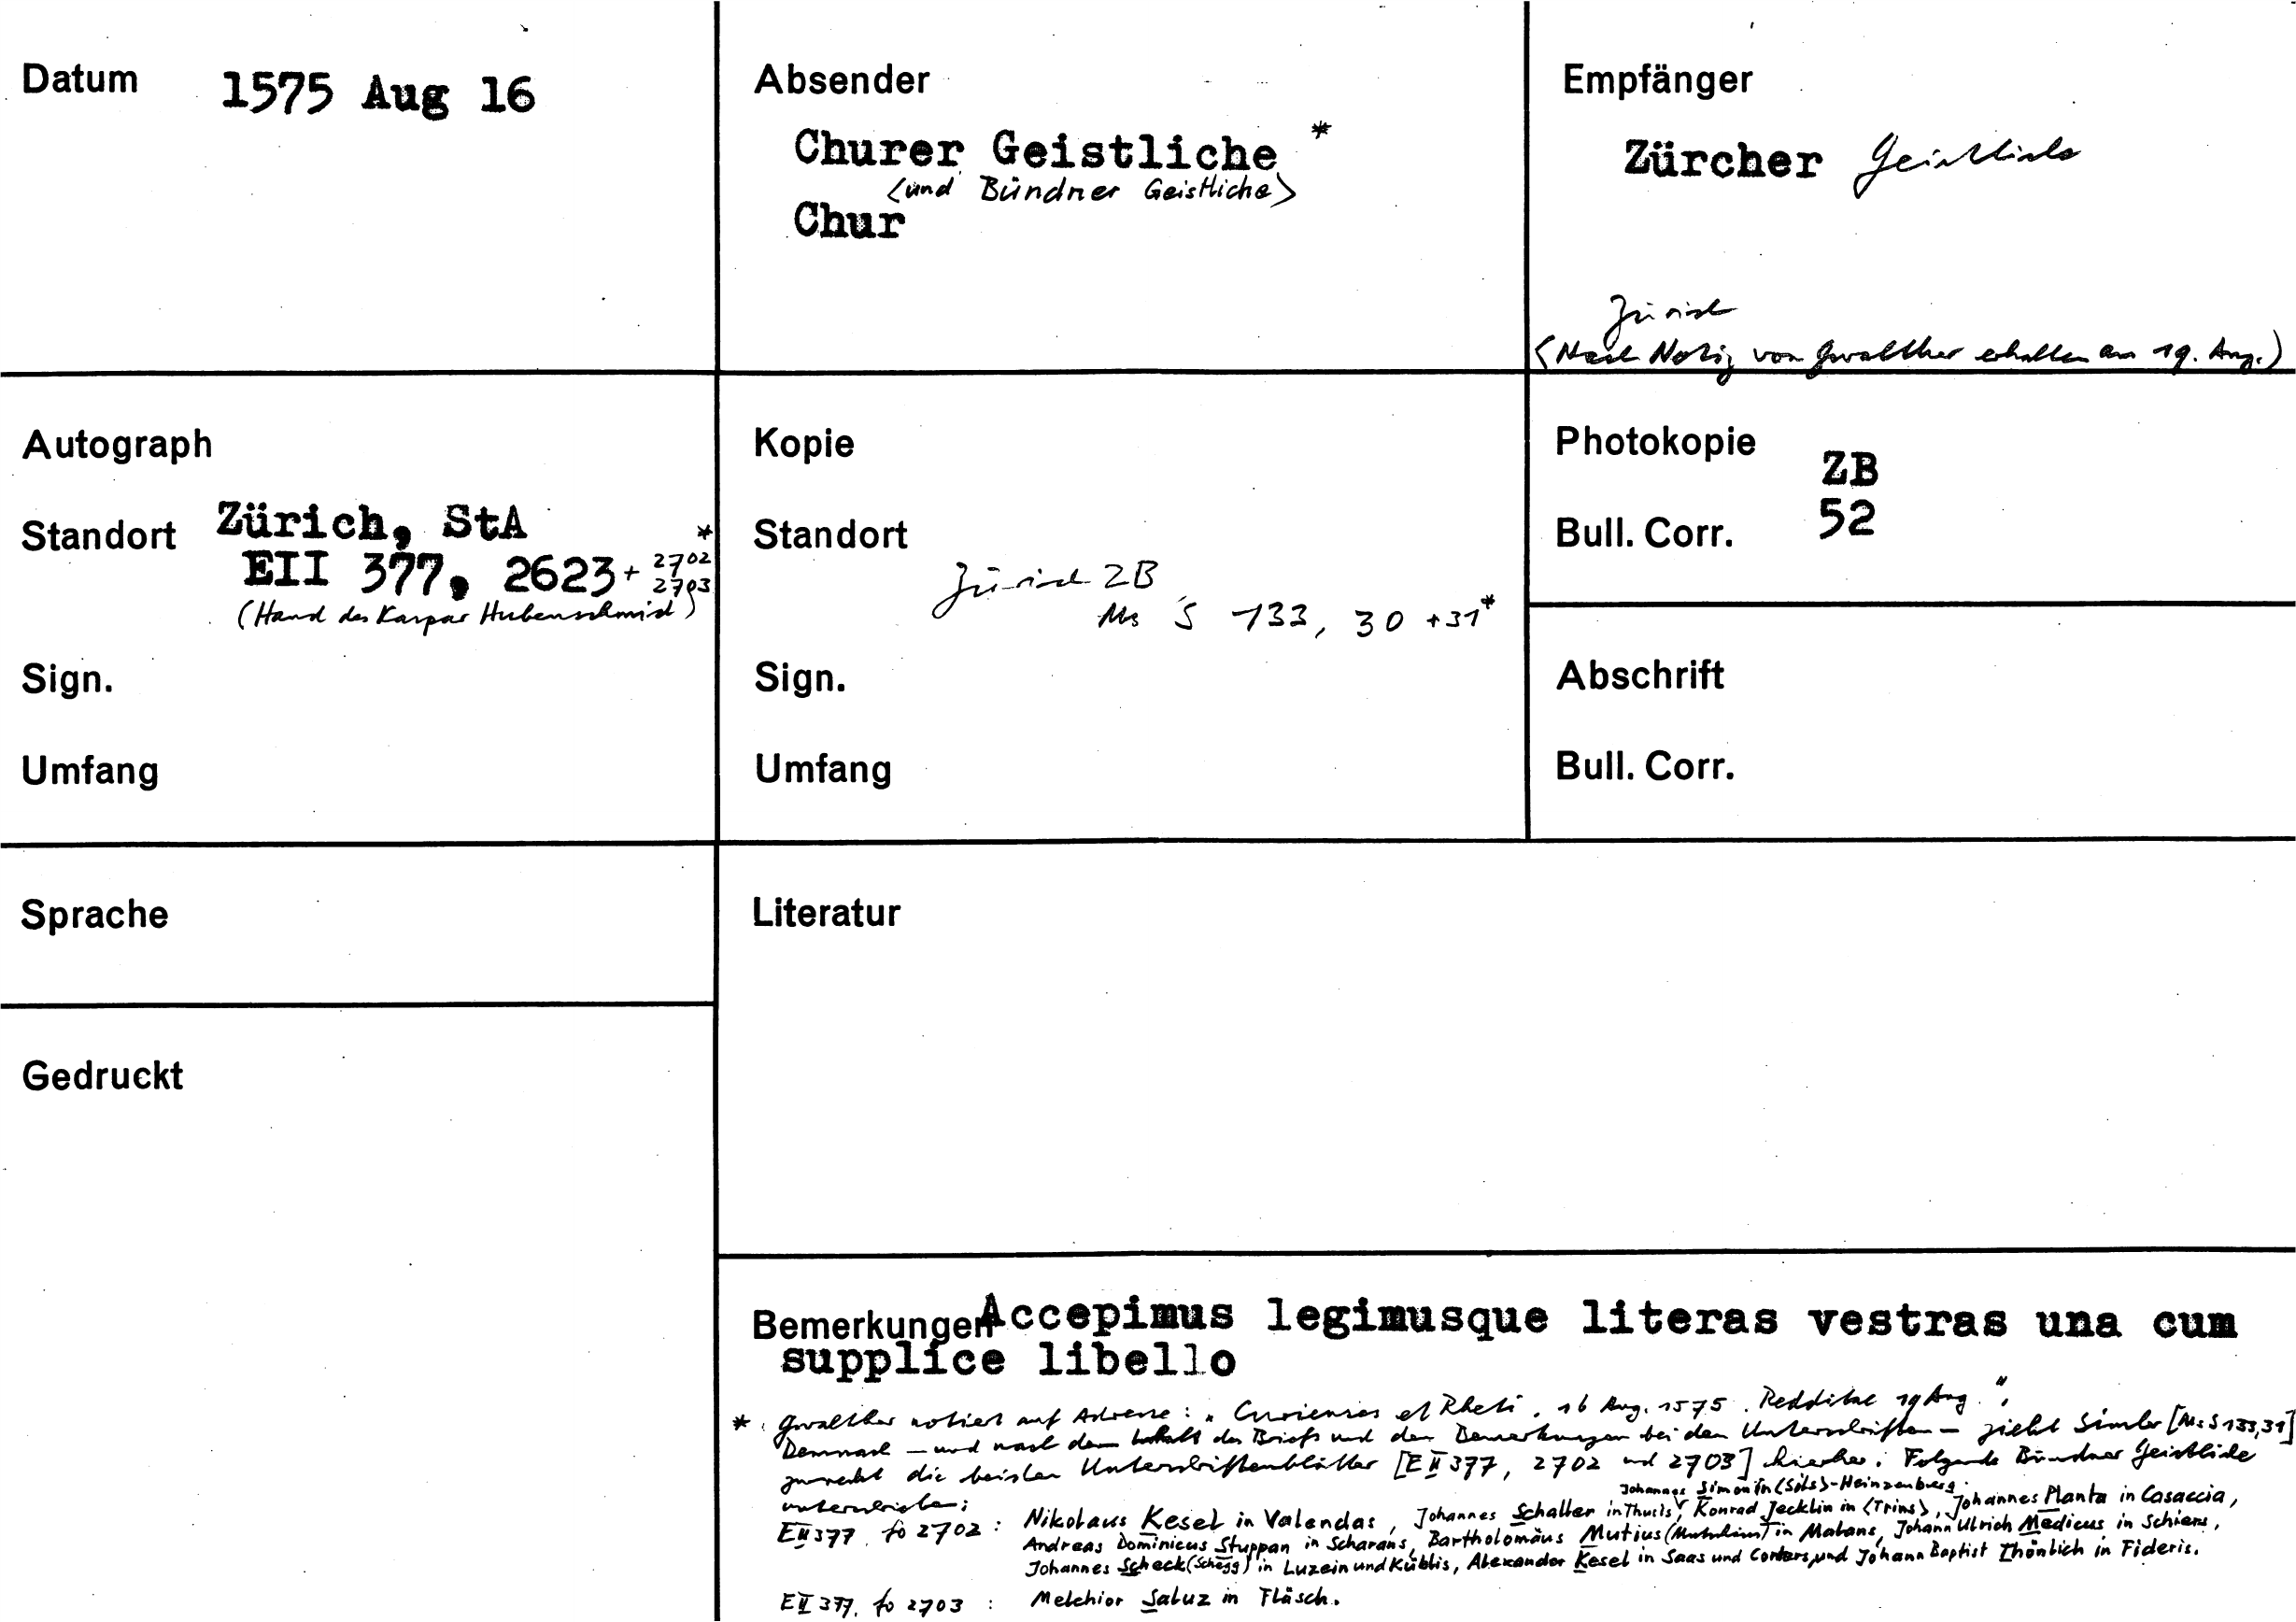 Datum 1575 Aug 16
Absender
Churer Geistliche *
<und Bündner Geistliche>
Chur
Empfänger
Zürcher Geistliche
Zürich
(Nach Notiz von Gwalther erhalten am 19. Aug.)
Autograph
Standort Zürich, StA *
EII 377, 2623 + 2702
2703
(Hand des Kaspar Hubenschmid)
Sign.
Umfang
Kopie
Standort
Zürich ZB
Ms S 133, 30 + 31*
Sign.
Umfang
Photokopie ZB
Bull. Corr. 52
Abschrift
Bull. Corr.
Sprache
Gedruckt
Literatur
Bemerkungen Accepimus legimusque literas vestras una cum
supplice libello
* Gwalther notiert auf Adresse: "Curienses et Rheti. 16 Aug. 1575. Redditae 19 Aug.".
Demnach – und nach dem Inhalt des Briefs und den Bemerkungen bei den Unterschriften – zieht Simler [Ms S 133,31]
zurecht die beiden Unterschriftenblätter [E II 377, 2702 und 2703] hierher. Folgende Bündner Geistliche
unterschrieben:
Johannes Simon in (Sils)-Heinzenberg,
EII 377, fo 2702: Nikolaus Kesel in Valendas, Johannes Schalter in Thusis, Konrad Jecklin in <Trins>, Johannes Planta in Casaccia,
Andreas Dominicus Stuppan in Scharans, Bartholomäus Mutius in Malans, Johann Ulrich Medicus in Schiers,
Johannes Scheck (Schegg) in Luzein und Küblis, Alexander Kesel in Saas und Conters, und Johann Baptist Thönlich in Fideris.
EII 377, fo 2703: Melchior Saluz in Fläsch.